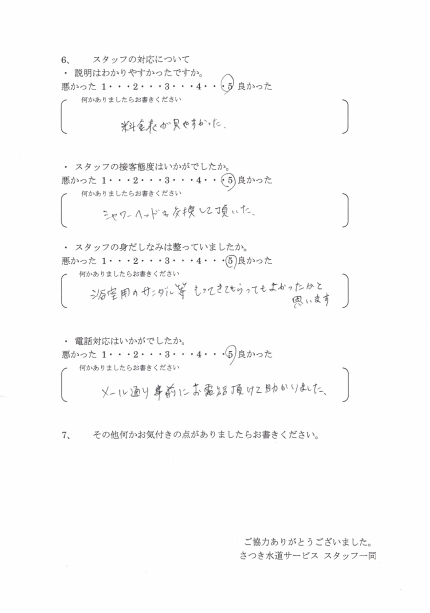 6、　　スタッフの対応について
・ 説明はわかりやすかったですか。
悪かった 1・・・2・・・3・・・4・・・5 良かった
何かありましたらお書きください
料金表が見やすかった。
・ スタッフの接客態度はいかがでしたか。
悪かった 1・・・2・・・3・・・4・・・5 良かった
何かありましたらお書きください
シャワーヘッドも交換して頂いた。
・ スタッフの身だしなみは整っていましたか。
悪かった 1・・・2・・・3・・・4・・・5 良かった
何かありましたらお書きください
浴室用のサンダル等 もってきてもらってもよかったかと
思います
・ 電話対応はいかがでしたか。
悪かった 1・・・2・・・3・・・4・・・5 良かった
何かありましたらお書きください
メール通り事前にお電話頂けて助かりました。
7、　　その他何かお気付きの点がありましたらお書きください。
ご協力ありがとうございました。
さつき水道サービス スタッフ一同